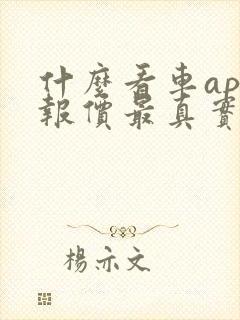 什麼看車ap
報價最真實
楊示文